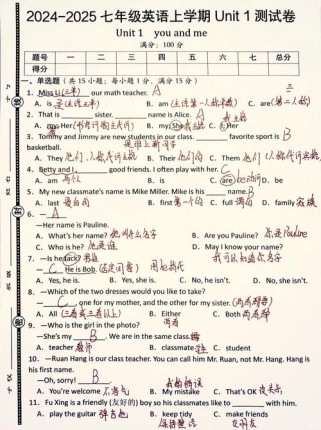 2024-2025 七年级英语上学期 Unit 1 测试卷
Unit 1 you and me
满分：100 分
题号 一 二 三 四 五 六 七 总分
得分
一、单选题（共 15 小题；每小题 1 分，满分 15 分）
1. Miss Li (三单) our math teacher. A 三
A. is 是(三单) B. am (第一人称单数) C. are (第二人称)
2. That is ______ sister. ______ name is Alice. A 我主格
A. my; Her (形容词性物主代词) B. my; She 我主格 C. I; Her
3. Tommy and Jimmy are new students in our class. ______ favorite sport is B
basketball.
A. They 他们,人称代词主格 B. Their 他们的 C. Them 他们(人称代词宾格)
4. Betty and I C good friends. I often play with her.
A. am B. is C. are D. be
5. My new classmate's name is Mike Miller. Mike is his ______ name. B
A. last 最后的 B. first 第一个的 C. full 满的 D. family 家族
6. — A
—Her name is Pauline.
A. What's her name? 她叫什么名字 B. Are you Pauline? 你是Pauline
C. Who is he? 他是谁 D. May I know your name?
7. —Is he Jack? 男 我可以知道你名字
— C He is Bob. (否定回答)
A. Yes, he is. B. Yes, she is. C. No, he isn't. D. No, she isn't.
8. —Which of the two dresses would you like to take?
— C , one for my mother, and the other for my sister. (两者都)
A. All (三者或三者以上) B. Either C. Both 两者都
9. —Who is the girl in the photo? 两者
—She's my B . We are in the same class.
A. teacher 教师 B. classmate 同学 C. student
10. —Ruan Hang is our class teacher. You can call him Mr. Ruan, not Mr. Hang. Hang is
his first name.
—Oh, sorry! B 我的错误
A. You're welcome 不客气 B. My mistake C. That's OK 没关系
11. Fu Xing is a friendly (友好的) boy so his classmates like to ______ with him.
A. play the guitar 弹吉他 B. keep tidy C. make friends
保持整洁 交朋友